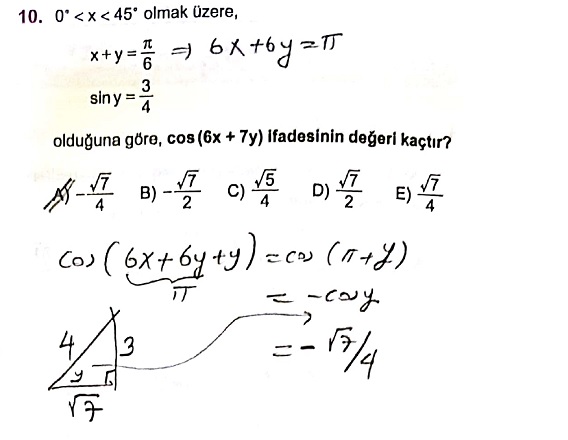 10. 0° < x < 45° olmak üzere,
x + y = π/6 ⇒ 6x + 6y = π
sin y = 3/4
olduğuna göre, cos (6x + 7y) ifadesinin değeri kaçtır?
A) -√7/4 B) -√7/2 C) √5/4 D) √7/2 E) √7/4
cos (6x + 6y + y) = cos (π + y)
π
= -cos y
4 3
= -√7/4
y
√7